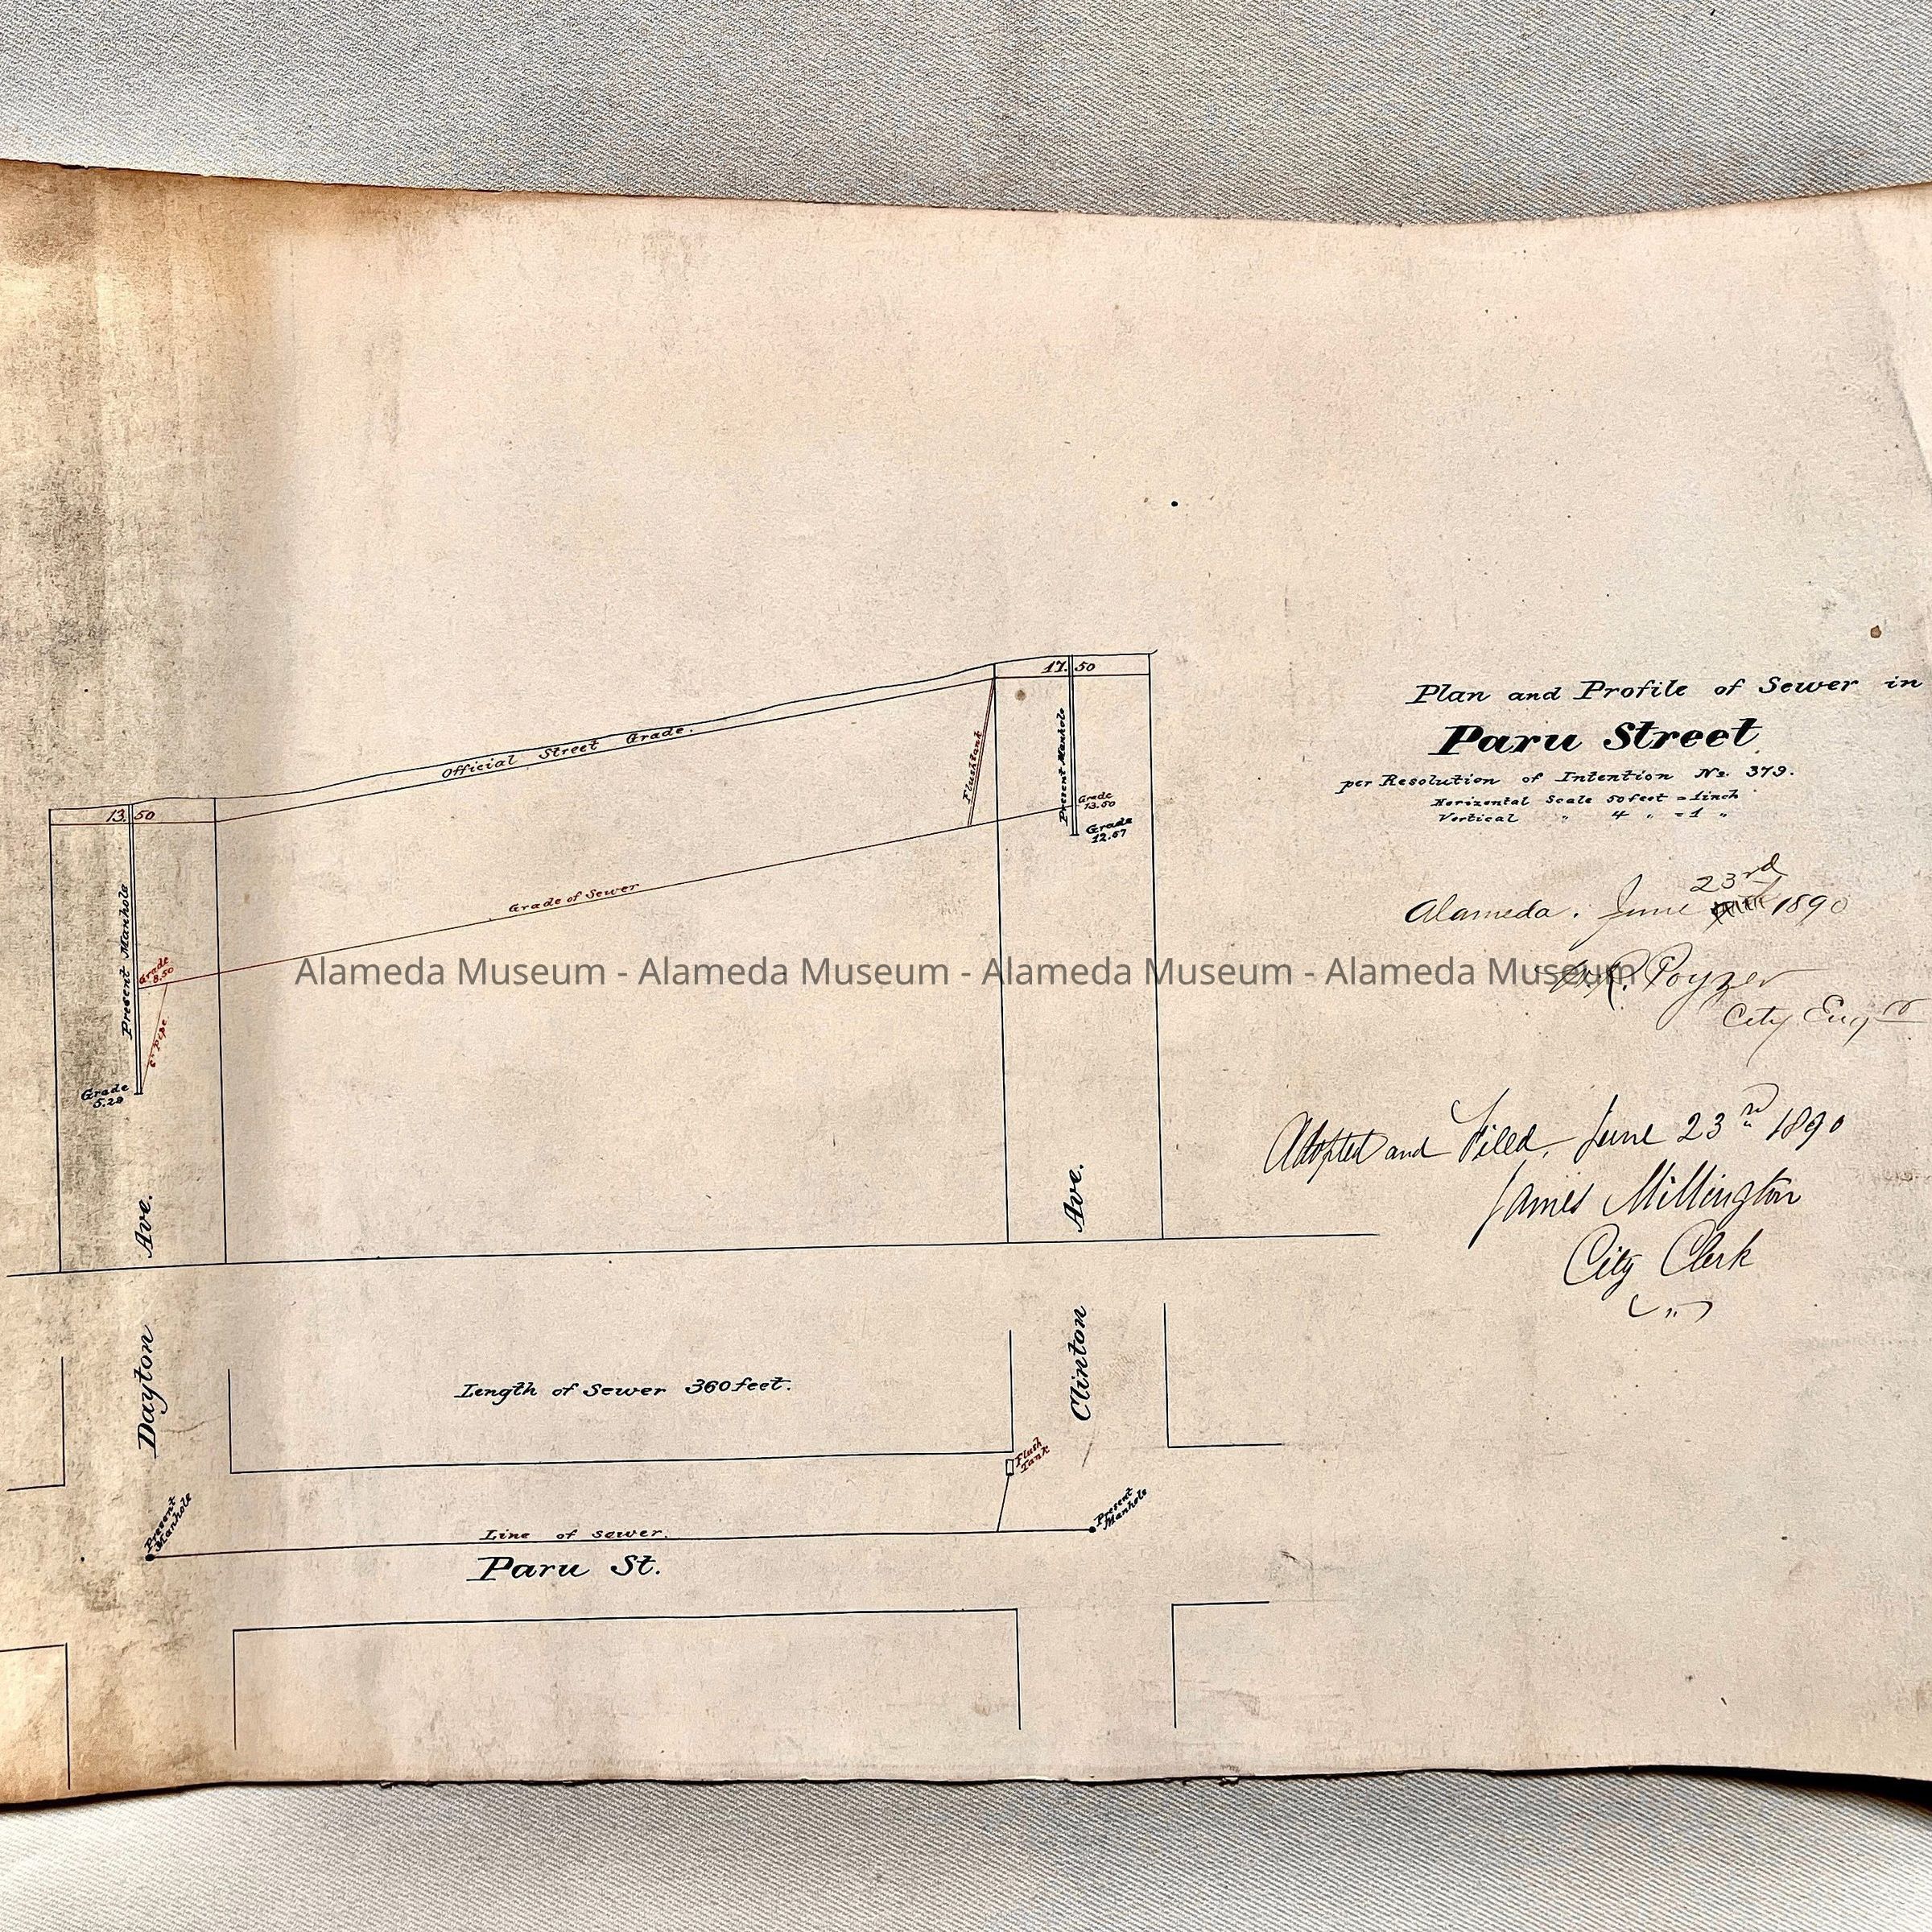 Plan and Profile of Sewer in
Paru Street
per Resolution of Intention No. 379.
Horizontal Scale 50 feet = 1 inch
Vertical " 4 " = 1 "
Alameda. June 23rd 1890
Poyzer
City Engr
Adopted and Filed, June 23rd 1890
James Millington
City Clerk
17.50
Official Street Grade.
Flushtank
Present Manhole
Grade
13.50
Grade
12.67
13.50
Present Manhole
Grade of Sewer
Grade
8.50
6" Pipe
Grade
5.28
Alameda Museum - Alameda Museum - Alameda Museum - Alameda Museum
Dayton Ave.
Clinton Ave.
Length of Sewer 360 feet.
Flush
Tank
Present
Manhole
Present
Manhole
Line of sewer.
Paru St.